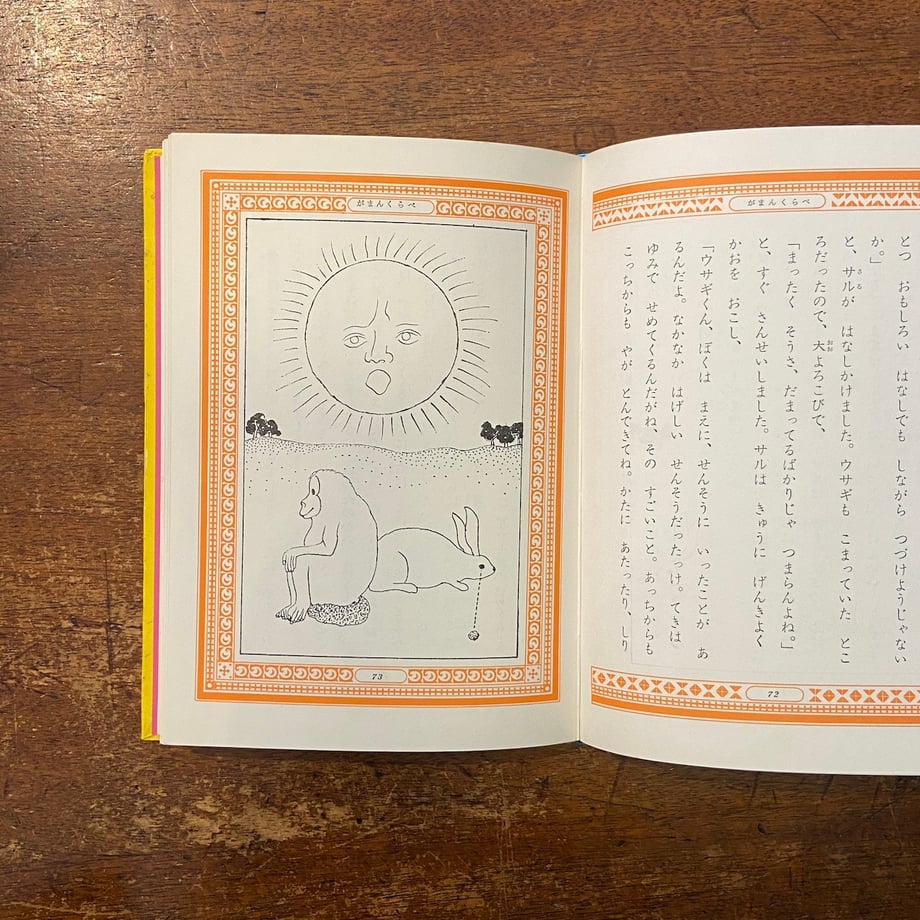 がまんくらべ
とつ　おもしろい　はなしでも　しながら　つづけようじゃない
か。」
と、サルが　はなしかけました。ウサギも　こまっていた　とこ
ろだったので、大よろこびで、
「まったく　そうさ、だまってるばかりじゃ　つまらんよね。」
と、すぐ　さんせいしました。サルは　きゅうに　げんきよく
かおを　おこし、
「ウサギくん、ぼくは　まえに、せんそうに　いったことが　あ
るんだよ。なかなか　はげしい　せんそうだったっけ。てきは
ゆみで　せめてくるんだがね、その　すごいこと。あっちからも
こっちからも　やが　とんできてね。かたに　あたったり、しり
72
がまんくらべ
73